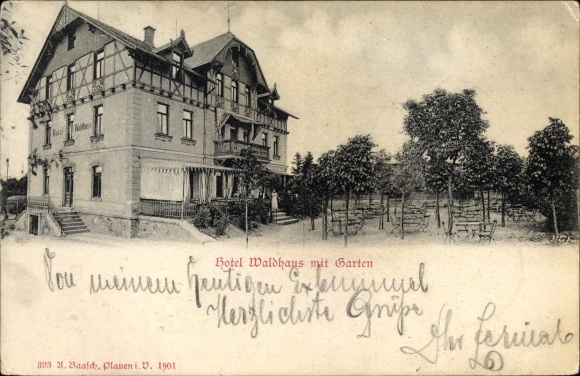 Hotel Waldhaus
Hotel Waldhaus mit Garten
Von meinem heutigen
Herzlichste Grüße
Ihr
393 A. Baasch, Plauen i. V. 1901